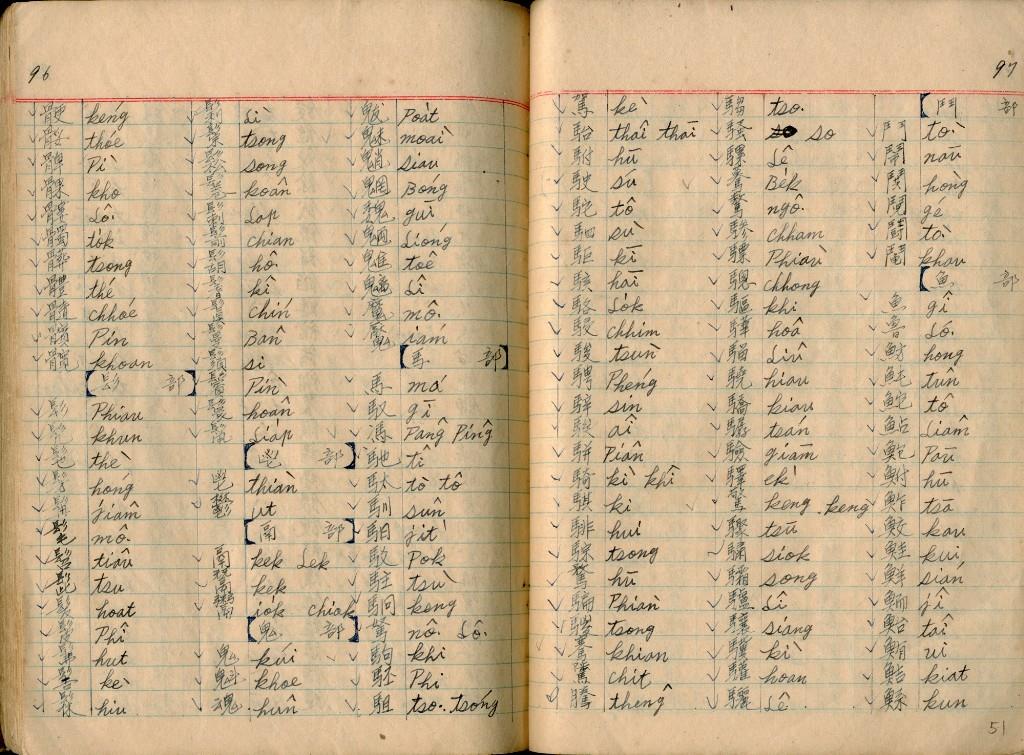 96
骾 keńg
骽 thóe
髀 Pì
髁 kho
髏 lô·
髑 to̍k
髒 tsong
體 thé
髓 chhóe
髕 Pín
髖 khoan
髟 部
髟 Phiau
髡 khun
髢 thè
髣 hóng
髯 jiâm
髦 mô·
髫 tiâu
髭 tsu
髮 hoat
髲 Phī
髴 hut
髻 kè
髹 hiu
鬁 Lì
鬃 tsong
鬆 song
鬈 koân
鬎 Lap
鬋 chian
鬍 hô·
鬐 kî
鬒 chín
鬘 Bân
鬚 si
鬢 Pìn
鬟 hoân
鬣 Liáp
鬯 部
鬯 thiàn
鬱 ut
鬲 部
鬲 kek Lek
kek
io̍k chiok
鬼 部
鬼 kúi
魁 khoe
魂 hûn
魃 Poa̍t
魅 moaī
魈 siau
魍 Bóng
魏 guī
魎 Lióng
魋 toê
魑 Lî
魔 mô·
魘 iám
馬 部
馬 má
馭 gī
馮 Pang̑ Pinĝ
馳 tî
馱 tò tô
馴 sûn
馹 ji̍t
駁 Pok
駐 tsù
駉 keng
駑 nô· Lô·
駒 khi
駓 Phi
駔 tso· tsóng
97
駕 kè
駘 thaî thāi
駙 hū
駛 sú
駝 tô
駟 sù
駏 kī
駭 hāi
駱 Lo̍k
駸 chhim
駿 tsùn
騁 Phéng
騂 sin
騃 aî
駢 Piân
騎 kî khî
騏 ki
騑 hui
騌 tsong
騖 hū
騙 Phiàn
騣 tsong
騫 khian
騭 chit
騰 thêng
騶 tso·
騷 so
騾 Lê
驀 Be̍k
驁 ngô·
驂 chham
驃 Phiaù
驄 chhong
驅 khi
驊 hoâ
騮 Liû
驍 hiau
驕 kiau
驏 tsán
驗 giām
驛 e̍k
驚 keng . kenḡ
驟 tsū
驌 siok
驦 song
驢 Lî
驤 siang
驥 kì
驩 hoan
驪 Lê
鬥 部
鬥 tò·
鬧 nāu
鬨 hòng
鬩 gé
鬪 tò·
鬮 khau
魚 部
魚 gî
魯 Ló·
魴 hong
魨 tûn
鮀 tô
鮎 Liâm
鮑 Pāu
鮒 hū
鮓 tsā
鮫 kau
鮭 kui
鮮 sián
鮞 jî
鮐 taî
鮪 ui
鮚 kiat
鯀 kun
51